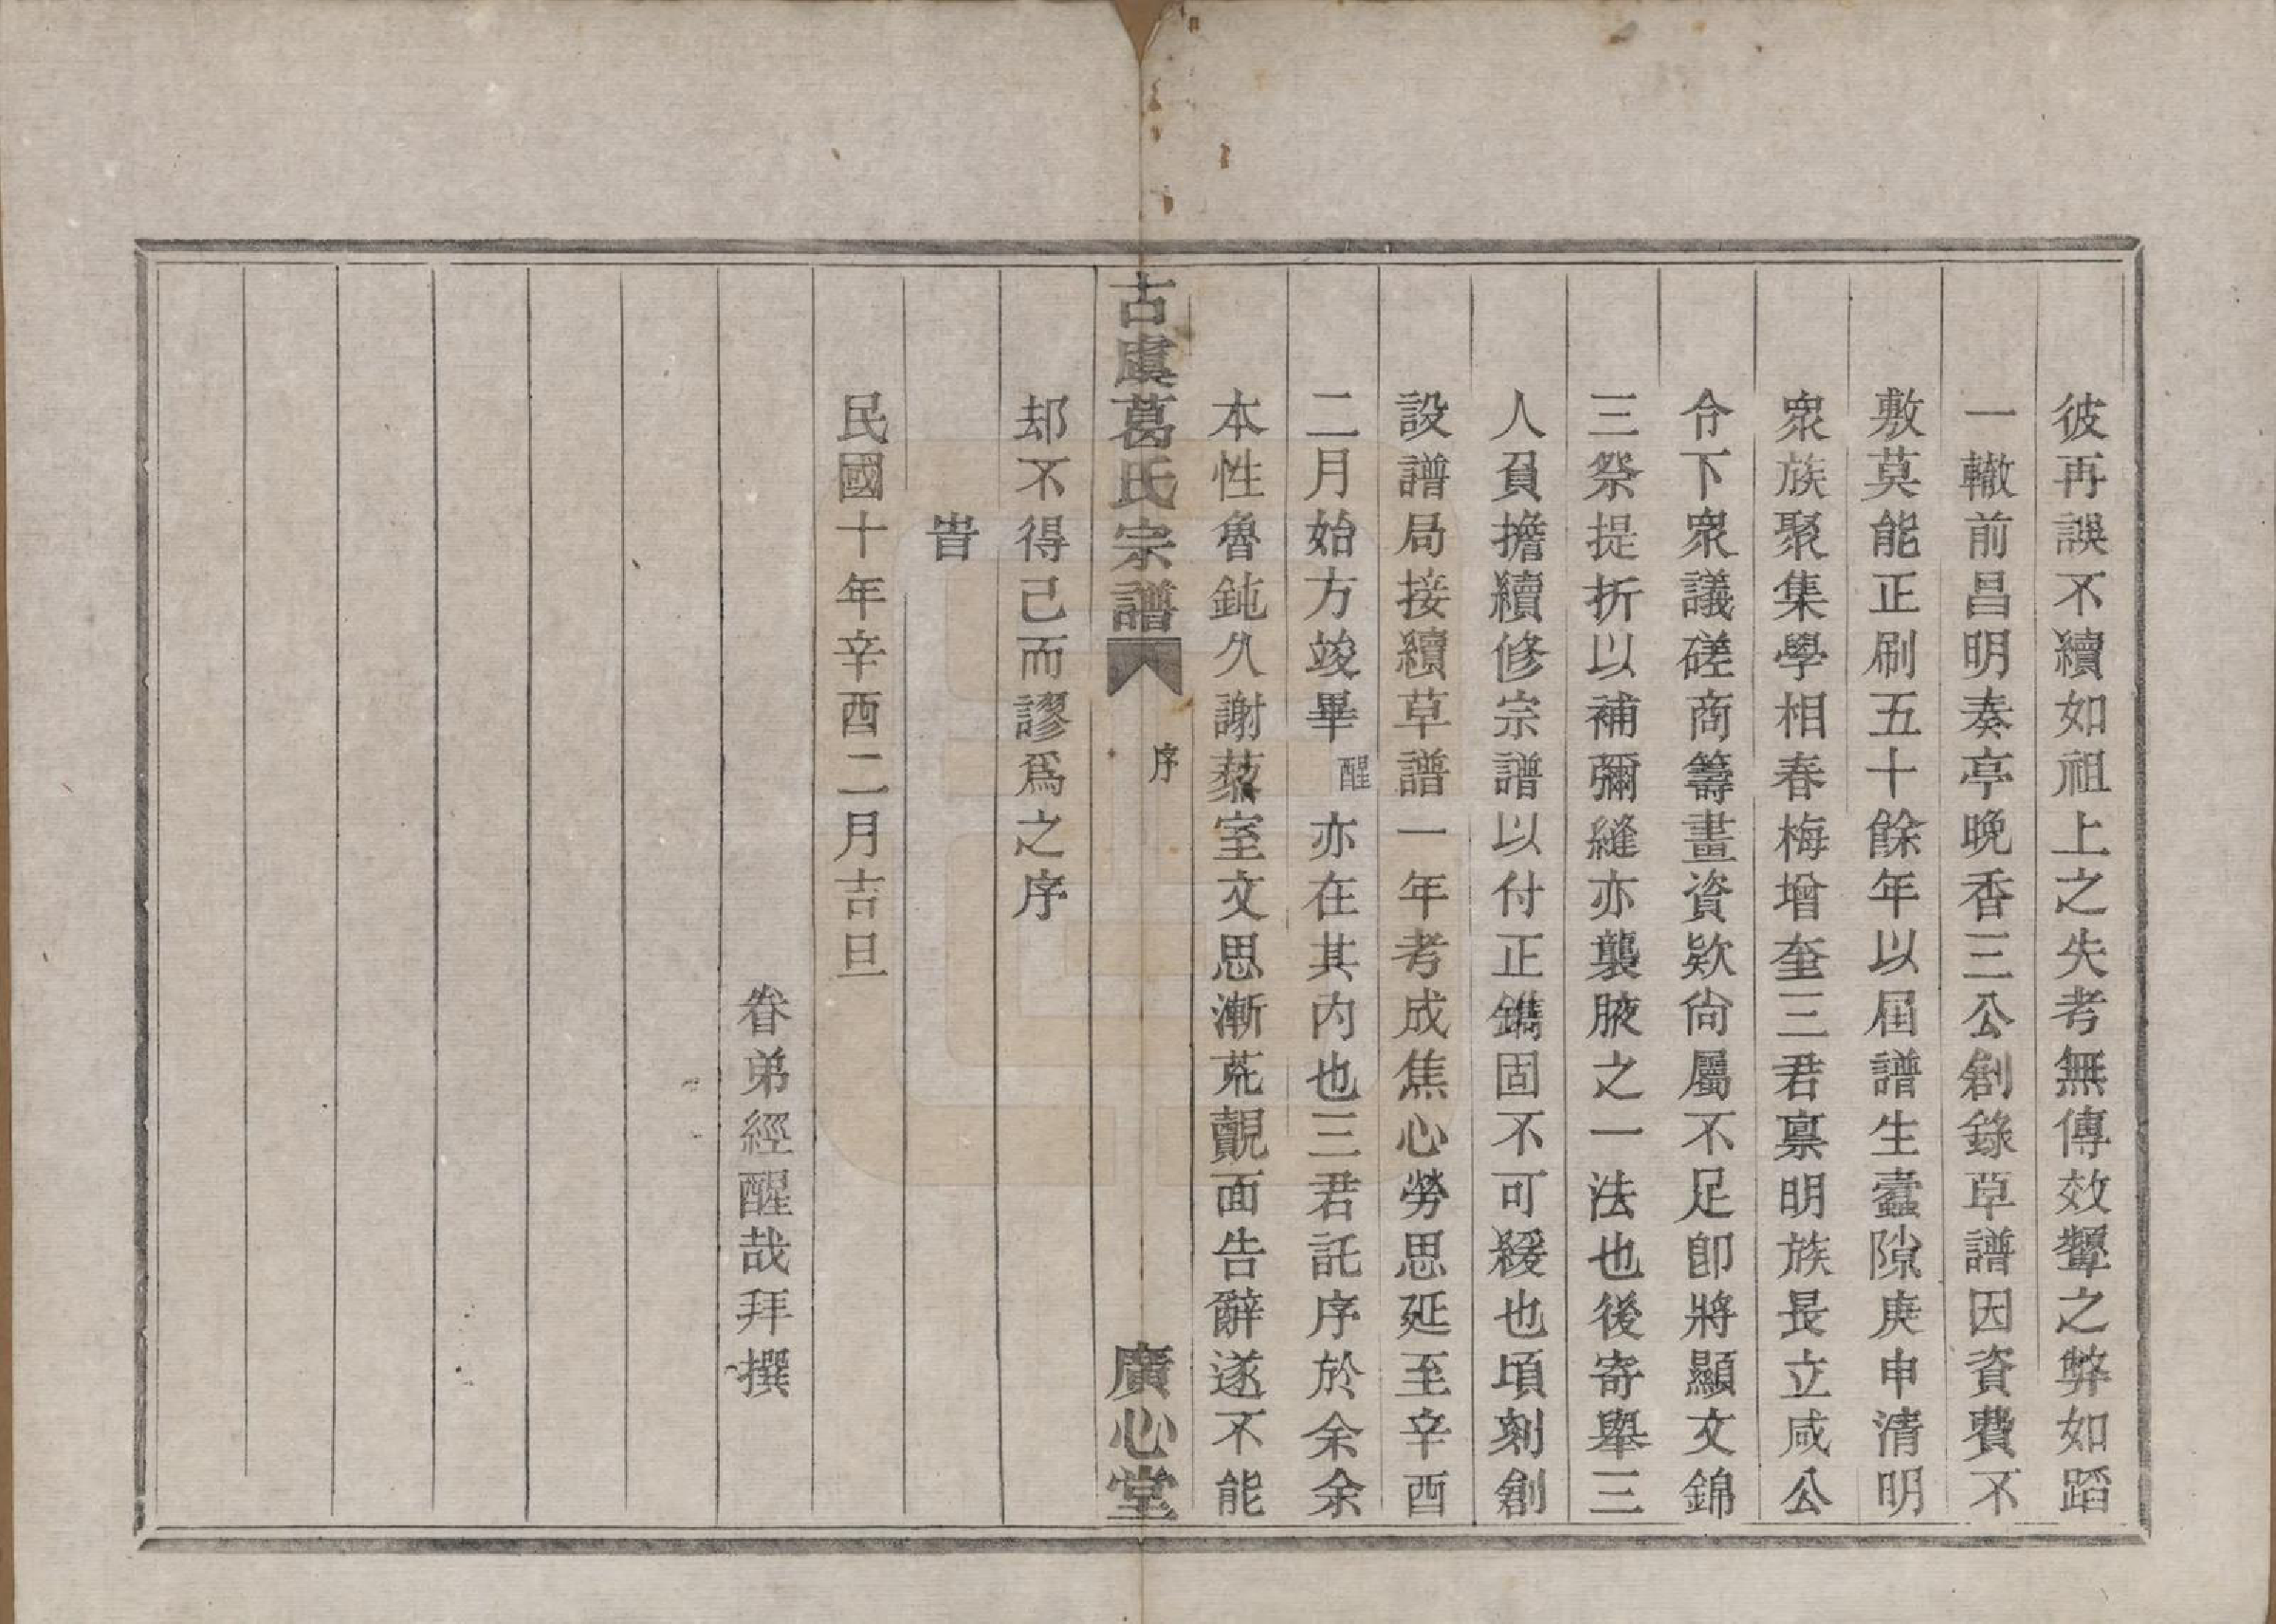 彼再誤不續如祖上之失考無傳效顰之弊如蹈
一轍前昌明奏亭晚香三公創錄草譜因資費不
敷莫能正刷五十餘年以屆譜生蠹隙庚申清明
衆族聚集學相春梅增奎三君禀明族長立咸公
令下衆議磋商籌畫資欵尙屬不足卽將顯文錦
三祭提折以補彌縫亦襲腋之一法也後寄舉三
人員擔續修宗譜以付正鐫固不可緩也頃刻創
設譜局接續草譜一年考成焦心勞思延至辛酉
二月始方竣畢醒亦在其內也三君託序於余余
本性魯鈍久謝藜室文思漸荒覿面告辭遂不能
古虞葛氏宗譜 序 廣心堂
却不得己而謬爲之序
旹
民國十年辛酉二月吉旦
眷弟經醒哉拜撰